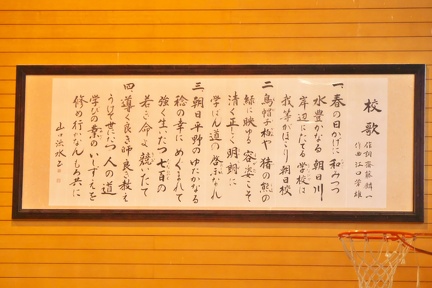 校歌
作詞 齋藤麟一
作曲 江口榮雄
一、春の日かげに和みつつ
水豊かなる朝日川
岸辺にたてる学校は
我等がほこり朝日校
二、烏帽子松や猪の熊の
緑に映ゆる容姿こそ
清く正しく明朗に
学ばん道の
三、朝日平野のゆたかなる
稔の幸にめぐまれて
強く生いたつ七百の
若き命よ競いたて
四、導く良き師良き教え
うけて世にたつ人の道
学びの業のいしずえを
修め行かなんもろ共に
山口